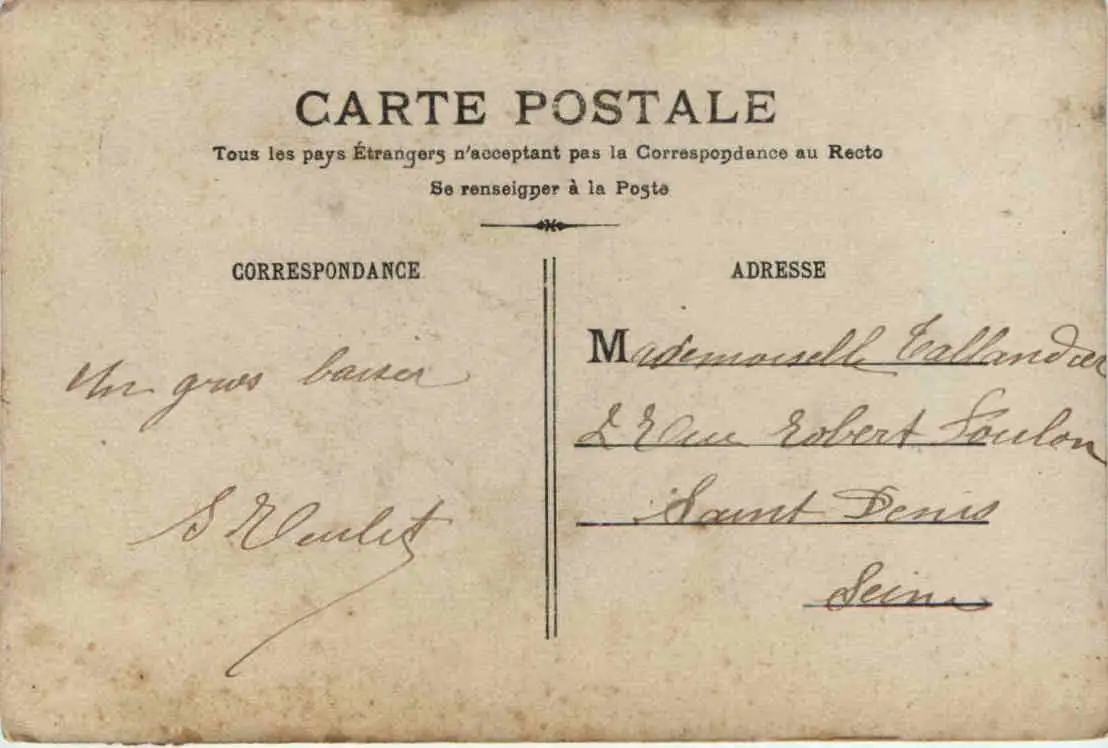 CARTE POSTALE
Tous les pays Étrangers n'acceptant pas la Correspondance au Recto
Se renseigner à la Poste
CORRESPONDANCE
Un gros baiser
ADRESSE
Mademoiselle Tallandier
2 Rue Robert Foulon
Saint Denis
Seine